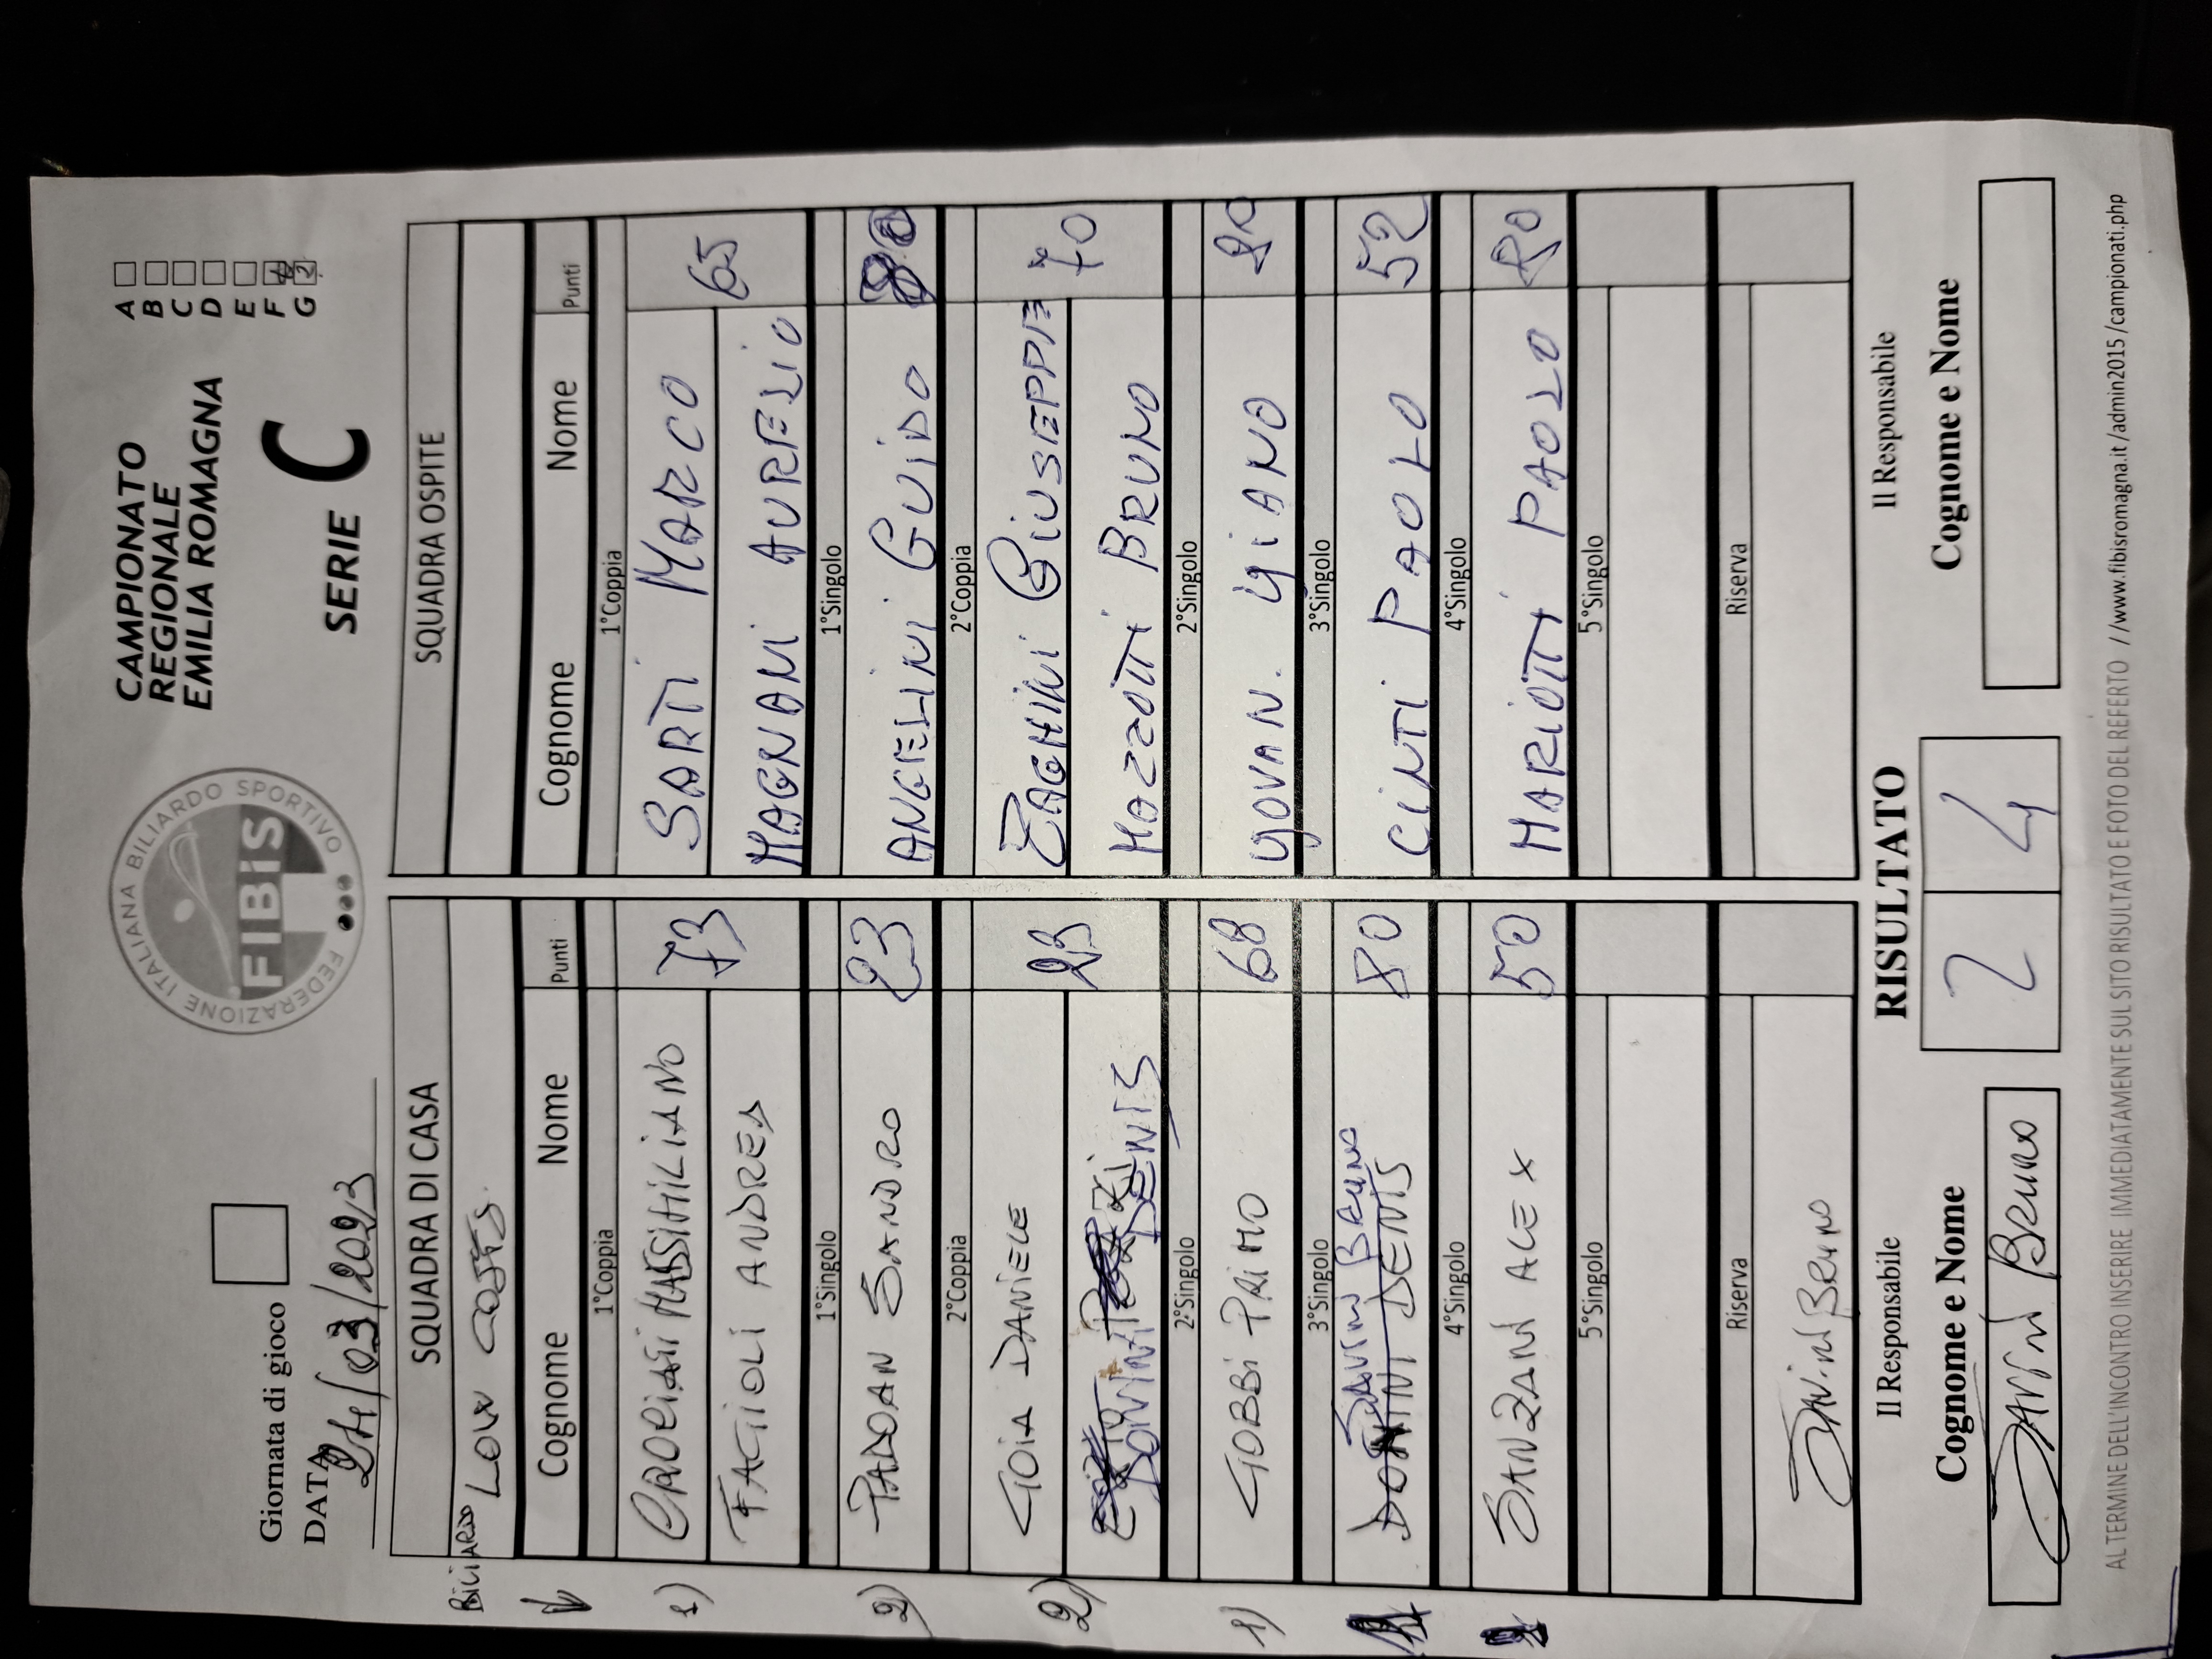 Giornata di gioco
DATA 24/03/2023
FEDERAZIONE ITALIANA BILIARDO SPORTIVO
FIBiS
CAMPIONATO
REGIONALE
EMILIA ROMAGNA
SERIE C
A
B
C
D
E
F
G
SQUADRA DI CASA
BiliARDO LOW COSTS
Cognome Nome Punti
1°Coppia
1) CROCIATI MASSIMILIANO 73
FACIOLI ANDREA
1°Singolo
2) PADOAN SANDRO 23
2°Coppia
2) GOIA DANIELE 23
DONINI DENIS
2°Singolo
1) GOBBI PRIMO 68
3°Singolo
SAVINI BRUNO 80
DONINI DENIS
4°Singolo
SANZANI ALEX 50
5°Singolo
Riserva
SAVINI BRUNO
SQUADRA OSPITE
Cognome Nome Punti
1°Coppia
SARTI MARCO 65
MAGNANI AURELIO
1°Singolo
ANGELINI GUIDO 80
2°Coppia
ZAGHINI GIUSEPPE 70
MAZZOTTI BRUNO
2°Singolo
YOVAN. YIANO 80
3°Singolo
CINTI PAOLO 52
4°Singolo
MARIOTTI PAOLO 80
5°Singolo
Riserva
Il Responsabile
Cognome e Nome
SAVINI BRUNO
RISULTATO
2 4
Il Responsabile
Cognome e Nome
AL TERMINE DELL'INCONTRO INSERIRE IMMEDIATAMENTE SUL SITO RISULTATO E FOTO DEL REFERTO //www.fibisromagna.it/admin2015/campionati.php